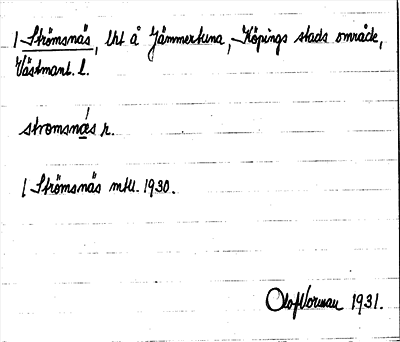 1 Strömsnäs, lht å Jämmertuna, Köpings stads område,
Västmanl. l.
stromsnä́s r.
1 Strömsnäs mtl. 1930.
Olof Norman 1931.